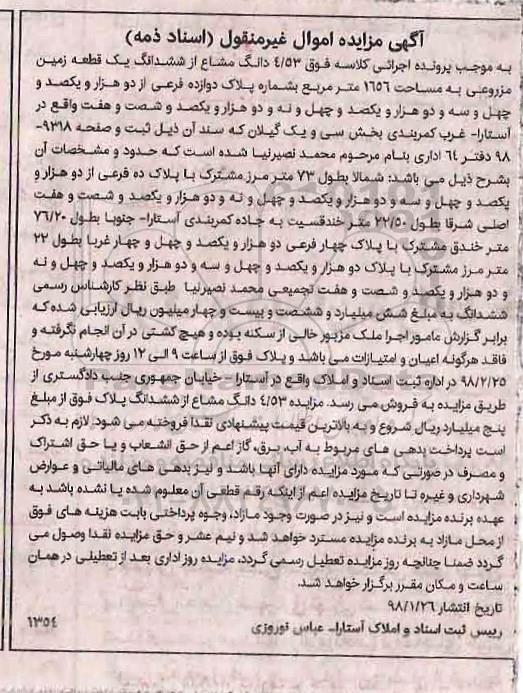 آگهی مزایده اموال غیرمنقول (اسناد ذمه)
به موجب پرونده اجرائی کلاسه فوق ٤/٥٣ دانگ مشاع از ششدانگ یک قطعه زمین
مزروعی به مساحت ١٦٥٦ متر مربع بشماره پلاک دوازده فرعی از دو هزار و یکصد و
چهل و سه و دو هزار و یکصد و چهل و نه و دو هزار و یکصد و شصت و هفت واقع در
آستارا- غرب کمربندی بخش سی و یک گیلان که سند آن ذیل ثبت و صفحه ٩٣١٨-
٩٨ دفتر ٦٤ اداری بنام مرحوم محمد نصیرنیا شده است که حدود و مشخصات آن
بشرح ذیل می باشد: شمالا بطول ٧٣ متر مرز مشترک با پلاک ده فرعی از دو هزار و
یکصد و چهل و سه و دو هزار و یکصد و چهل و نه و دو هزار و یکصد و شصت و هفت
اصلی شرقا بطول ٢٢/٥٠ متر خندقسیت به جاده کمربندی آستارا- جنوبا بطول ٧٦/٢٠
متر خندق مشترک با پلاک چهار فرعی دو هزار و یکصد و چهل و چهار غربا بطول ٢٢
متر مرز مشترک با پلاک دو هزار و یکصد و چهل و سه و دو هزار و یکصد و چهل و نه
و دو هزار و یکصد و شصت و هفت تجمیعی محمد نصیرنیا طبق نظر کارشناس رسمی
ششدانگ به مبلغ شش میلیارد و ششصد و بیست و چهار میلیون ریال ارزیابی شده که
برابر گزارش مامور اجرا ملک مزبور خالی از سکنه بوده و هیچ کشتی در آن انجام نگرفته و
فاقد هرگونه اعیان و امتیازات می باشد و پلاک فوق از ساعت ٩ الی ١٢ روز چهارشنبه مورخ
٩٨/٢/٢٥ در اداره ثبت اسناد و املاک واقع در آستارا- خیابان جمهوری جنب دادگستری از
طریق مزایده به فروش می رسد. مزایده ٤/٥٣ دانگ مشاع از ششدانگ پلاک فوق از مبلغ
پنج میلیارد ریال شروع و به بالاترین قیمت پیشنهادی نقدا فروخته می شود. لازم به ذکر
است پرداخت بدهی های مربوط به آب، برق، گاز اعم از حق انشعاب و یا حق اشتراک
و مصرف در صورتی که مورد مزایده دارای آنها باشد و نیز بدهی های مالیاتی و عوارض
شهرداری و غیره تا تاریخ مزایده اعم از اینکه رقم قطعی آن معلوم شده یا نشده باشد به
عهده برنده مزایده است و نیز در صورت وجود مازاد، وجوه پرداختی بابت هزینه های فوق
از محل مازاد به برنده مزایده مسترد خواهد شد و نیم عشر و حق مزایده نقدا وصول می
گردد ضمنا چنانچه روز مزایده تعطیل رسمی گردد، مزایده روز اداری بعد از تعطیلی در همان
ساعت و مکان مقرر برگزار خواهد شد.
تاریخ انتشار ٩٨/١/٢٦
رییس ثبت اسناد و املاک آستارا- عباس نوروزی
١٣٥٤